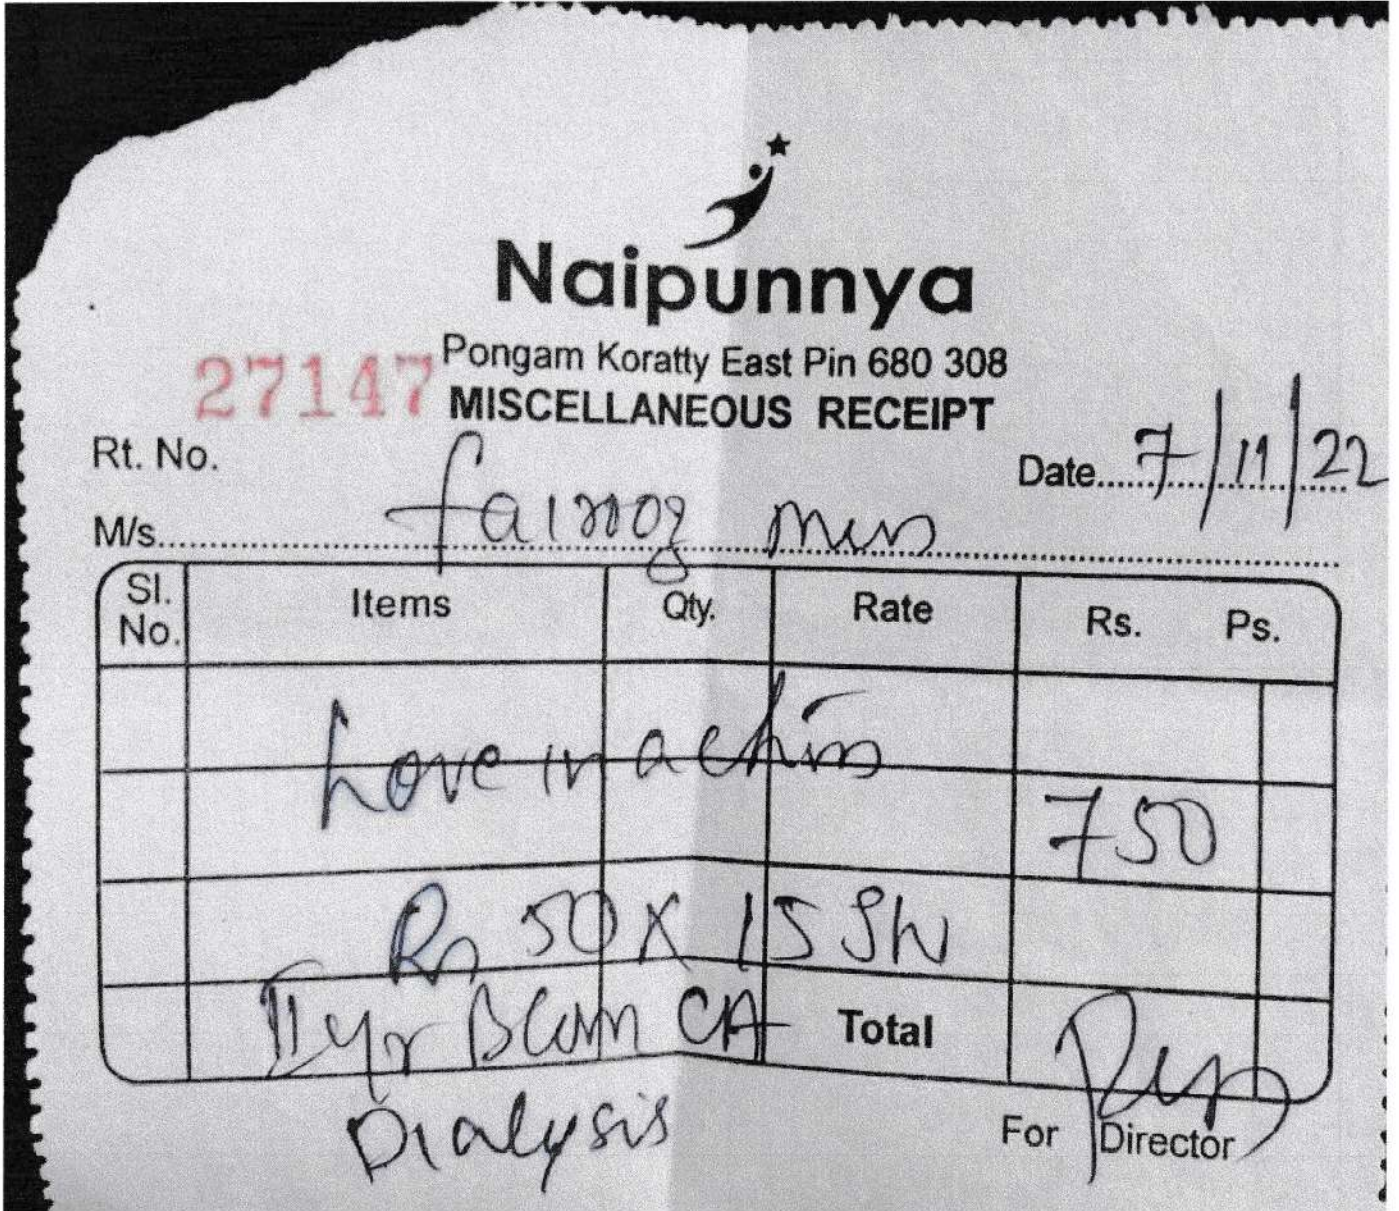 Naipunnya
Pongam Koratty East Pin 680 308
27147 MISCELLANEOUS RECEIPT
Rt. No.
Date 7/11/22
M/s. miss
Sl. No. Items Qty. Rate Rs. Ps.
Love in action
750
Rs 50 X 15
II yr BCom CA Total
Dialysis
For Director